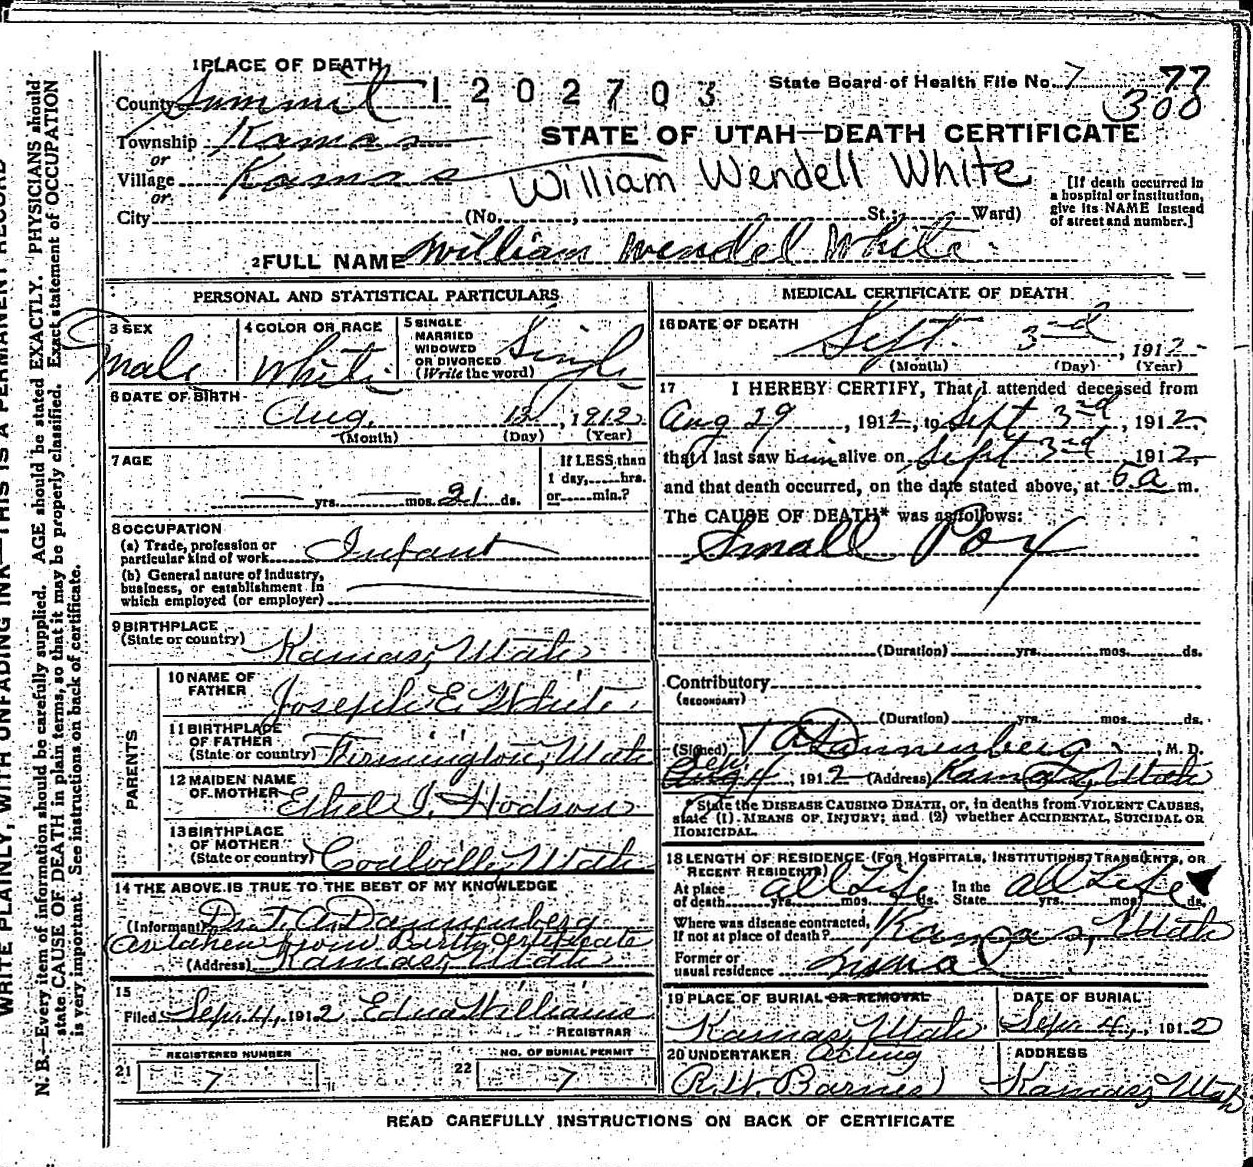 1 PLACE OF DEATH
County Summit
1 2 0 2 7 0 3
State Board of Health File No. 7 77
300
Township Kamas
or
Village Kamas
or
STATE OF UTAH—DEATH CERTIFICATE
William Wendell White
[If death occurred in a hospital or institution, give its NAME instead of street and number.]
City (No. , St.; Ward)
2 FULL NAME William Wendel White
PERSONAL AND STATISTICAL PARTICULARS
3 SEX Male
4 COLOR OR RACE White
5 SINGLE MARRIED WIDOWED OR DIVORCED (Write the word) Single
6 DATE OF BIRTH Aug. 12, 1912
(Month) (Day) (Year)
7 AGE yrs. mos. 21 ds.
If LESS than 1 day, hrs. or min.?
8 OCCUPATION
(a) Trade, profession or particular kind of work Infant
(b) General nature of industry, business, or establishment in which employed (or employer)
9 BIRTHPLACE (State or country) Kamas, Utah
PARENTS
10 NAME OF FATHER Joseph E White
11 BIRTHPLACE OF FATHER (State or country) Firmington, Utah
12 MAIDEN NAME OF MOTHER Ethel I. Hodson
13 BIRTHPLACE OF MOTHER (State or country) Coalville, Utah
14 THE ABOVE IS TRUE TO THE BEST OF MY KNOWLEDGE
(Informant) Dr. T. A. Dannenberg
As taken from Birth Certificate
(Address) Kamas, Utah
15
Filed Sept 4, 1912 Edna Williams
REGISTRAR
REGISTERED NUMBER
21 7
NO. OF BURIAL PERMIT
22 7
MEDICAL CERTIFICATE OF DEATH
16 DATE OF DEATH Sept. 3rd, 1912
(Month) (Day) (Year)
17 I HEREBY CERTIFY, That I attended deceased from
Aug 29, 1912, to Sept 3rd, 1912,
that I last saw him alive on Sept 3rd 1912,
and that death occurred, on the date stated above, at 5 a m.
The CAUSE OF DEATH* was as follows:
Small Pox
(Duration) yrs. mos. ds.
Contributory
(SECONDARY)
(Duration) yrs. mos. ds.
(Signed) T A Dannenberg, M. D.
Sept
Aug 4, 1912 (Address) Kamas, Utah
* State the DISEASE CAUSING DEATH, or, in deaths from VIOLENT CAUSES,
state (1) MEANS OF INJURY; and (2) whether ACCIDENTAL, SUICIDAL OR
HOMICIDAL.
18 LENGTH OF RESIDENCE (FOR HOSPITALS, INSTITUTIONS, TRANSIENTS, OR
RECENT RESIDENTS)
At place of death all Life yrs. mos. ds. In the State all Life yrs. mos. ds.
Where was disease contracted, If not at place of death? Kamas, Utah
Former or usual residence
19 PLACE OF BURIAL OR REMOVAL
Kamas, Utah
DATE OF BURIAL
Sept 4, 1912
20 UNDERTAKER Acting
R. W. Barnes
ADDRESS
Kamas, Utah
READ CAREFULLY INSTRUCTIONS ON BACK OF CERTIFICATE
WRITE PLAINLY, WITH UNFADING INK—THIS IS A PERMANENT RECORD
N. B.—Every item of information should be carefully supplied. AGE should be stated EXACTLY. PHYSICIANS should
state CAUSE OF DEATH in plain terms, so that it may be properly classified. Exact statement of OCCUPATION
is very important. See instructions on back of certificate.